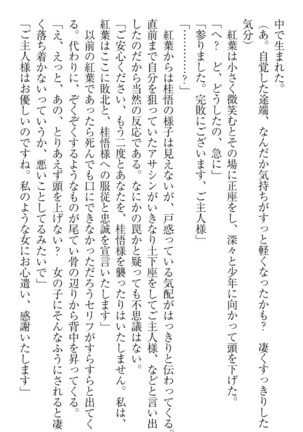 中で生まれた。
（あ。自覚した途端、なんだか気持ちがすっと軽くなったかも？　凄くすっきりした
気分）
　紅葉は小さく微笑むとその場に正座をし、深々と少年に向かって頭を下げた。
「へ？　ど、どうしたの、急に」
「参りました。完敗にございます、ご主人様」
「………？」
　紅葉からは桂悟の様子は見えないが、戸惑っている気配がはっきりと伝わってくる。
直前まで自分を狙っていたアサシンがいきなり土下座をしてご主人様、などと言い出
したのだから当然の反応である。なにかの罠かと疑っても不思議はない。
「ご安心ください、もう二度とあなたを、桂悟様を襲ったりはいたしません。私は、
紅葉はここに敗北と、桂悟様への服従と忠誠を宣言いたします」
　以前の紅葉であったら死んでも口にできなかっただろうセリフがすらすらと出てく
る。代わりに、ぞくぞくするようなものが尾てい骨の辺りから背中を昇ってくる。
「え、えっと、あの、とりあえず頭を上げない？　女の子にそんなふうにされると凄
く落ち着かないっていうか、悪いことしてるみたいで」
「ご主人様はお優しいのですね。私のような女にお心遣い、感謝いたします」